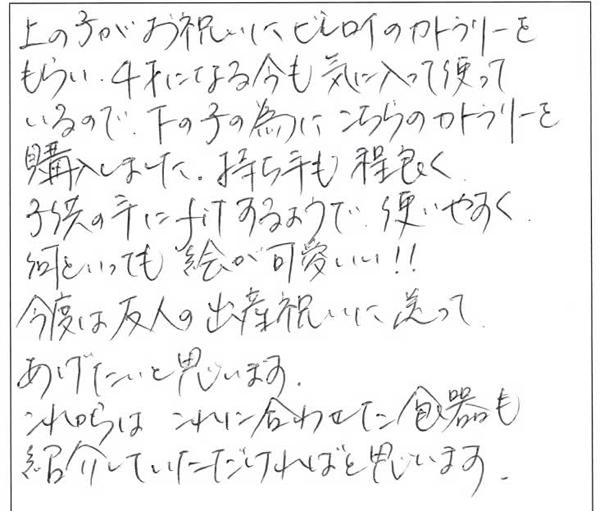 上の子がお祝いにビレロイのカトラリーを
もらい、4才になる今も気に入って使って
いるので、下の子の為にこちらのカトラリーを
購入しました。持ち手も程良く
子供の手にfitするようで、使いやすく
何といっても絵が可愛いい!!
今度は友人の出産祝いに送って
あげたいと思います。
これからはこれに合わせた食器も
紹介していただければと思います。